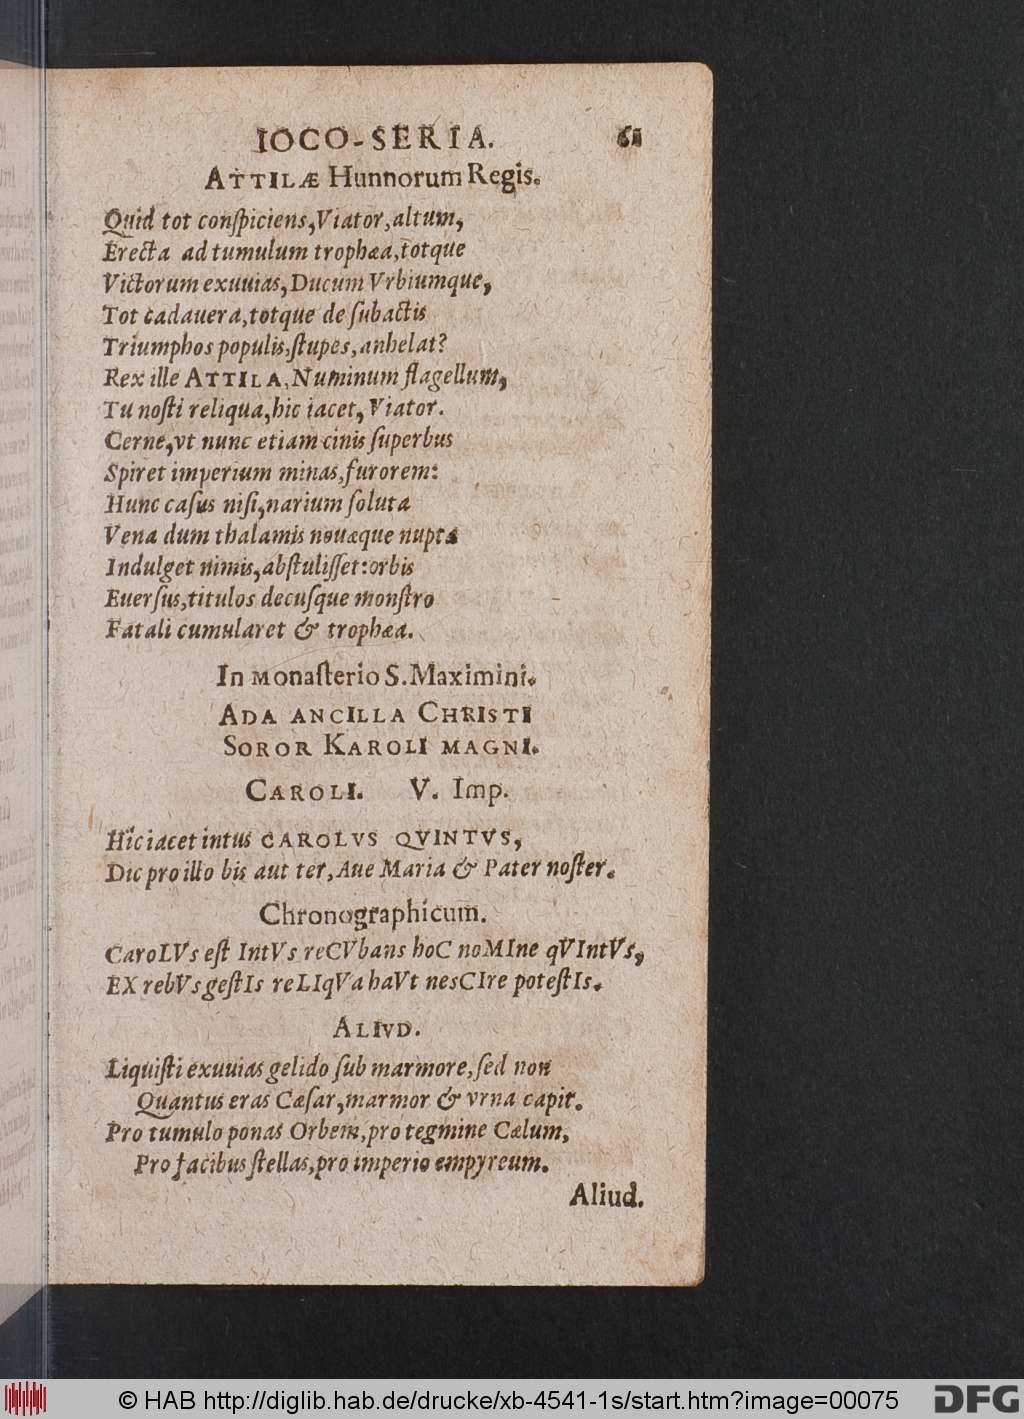 IOCO-SERIA. 61
ATTILÆ Hunnorum Regis.
Quid tot conſpiciens, Viator, altum,
Erecta ad tumulum trophæa, totque
Victorum exuuias, Ducum Vrbiumque,
Tot cadauera, totque de ſubactis
Triumphos populis, ſtupes, anhelat?
Rex ille ATTILA, Numinum flagellum,
Tu noſti reliqua, hic iacet, Viator.
Cerne, vt nunc etiam cinis ſuperbus
Spiret imperium minas, furorem:
Hunc caſus niſi, narium ſoluta
Vena dum thalamis nouæque nuptæ
Indulget nimis, abſtuliſſet: orbis
Euerſus, titulos decuſque monſtro
Fatali cumularet & trophæa.
In Monaſterio S. Maximini.
ADA ANCILLA CHRISTI
SOROR KAROLI MAGNI.
CAROLI. V. Imp.
Hîc iacet intus CAROLVS QVINTVS,
Dic pro illo bis aut ter, Aue Maria & Pater noſter.
Chronographicum.
CaroLVs eſt IntVs reCVbans hoC noMIne qVIntVs,
EX rebVs geſtIs reLIqVa haVt nesCIre poteſtIs.
ALIVD.
Liquiſti exuuias gelido ſub marmore, ſed non
Quantus eras Cæſar, marmor & vrna capit.
Pro tumulo ponas Orbem, pro tegmine Cælum,
Pro facibus ſtellas, pro imperio empyreum.
Aliud.
© HAB http://diglib.hab.de/drucke/xb-4541-1s/start.htm?image=00075 DFG